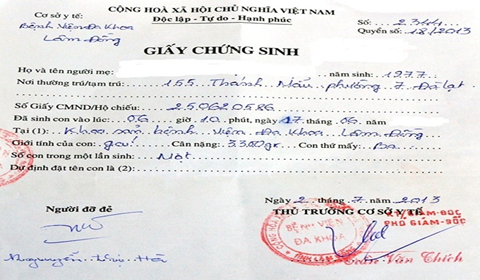 CỘNG HOÀ XÃ HỘI CHỦ NGHĨA VIỆT NAM
Độc lập - Tự do - Hạnh phúc
Cơ sở y tế:
Bệnh Viện Đa Khoa
Lâm Đồng
Số: 2344
Quyển số: 18/2013
GIẤY CHỨNG SINH
Họ và tên người mẹ: năm sinh: 1977
Nơi thường trú/tạm trú: 155 Thánh Mẫu, phường 7 Đà lạt
Số Giấy CMND/Hộ chiếu: 250620586
Đã sinh con vào lúc: 06 giờ 10 phút, ngày 17 tháng 06 năm
Tại (1): Khoa sản bệnh viện Đa Khoa Lâm Đồng
Giới tính của con: gái Cân nặng: 3300gr Con thứ mấy: Ba
Số con trong một lần sinh: Một
Dự định đặt tên con là (2):
Ngày 2 tháng 7 năm 2013
Người đỡ đẻ
THỦ TRƯỞNG CƠ SỞ Y TẾ
PHÓ GIÁM ĐỐC
BỆNH VIỆN
ĐA KHOA
Văn Thích